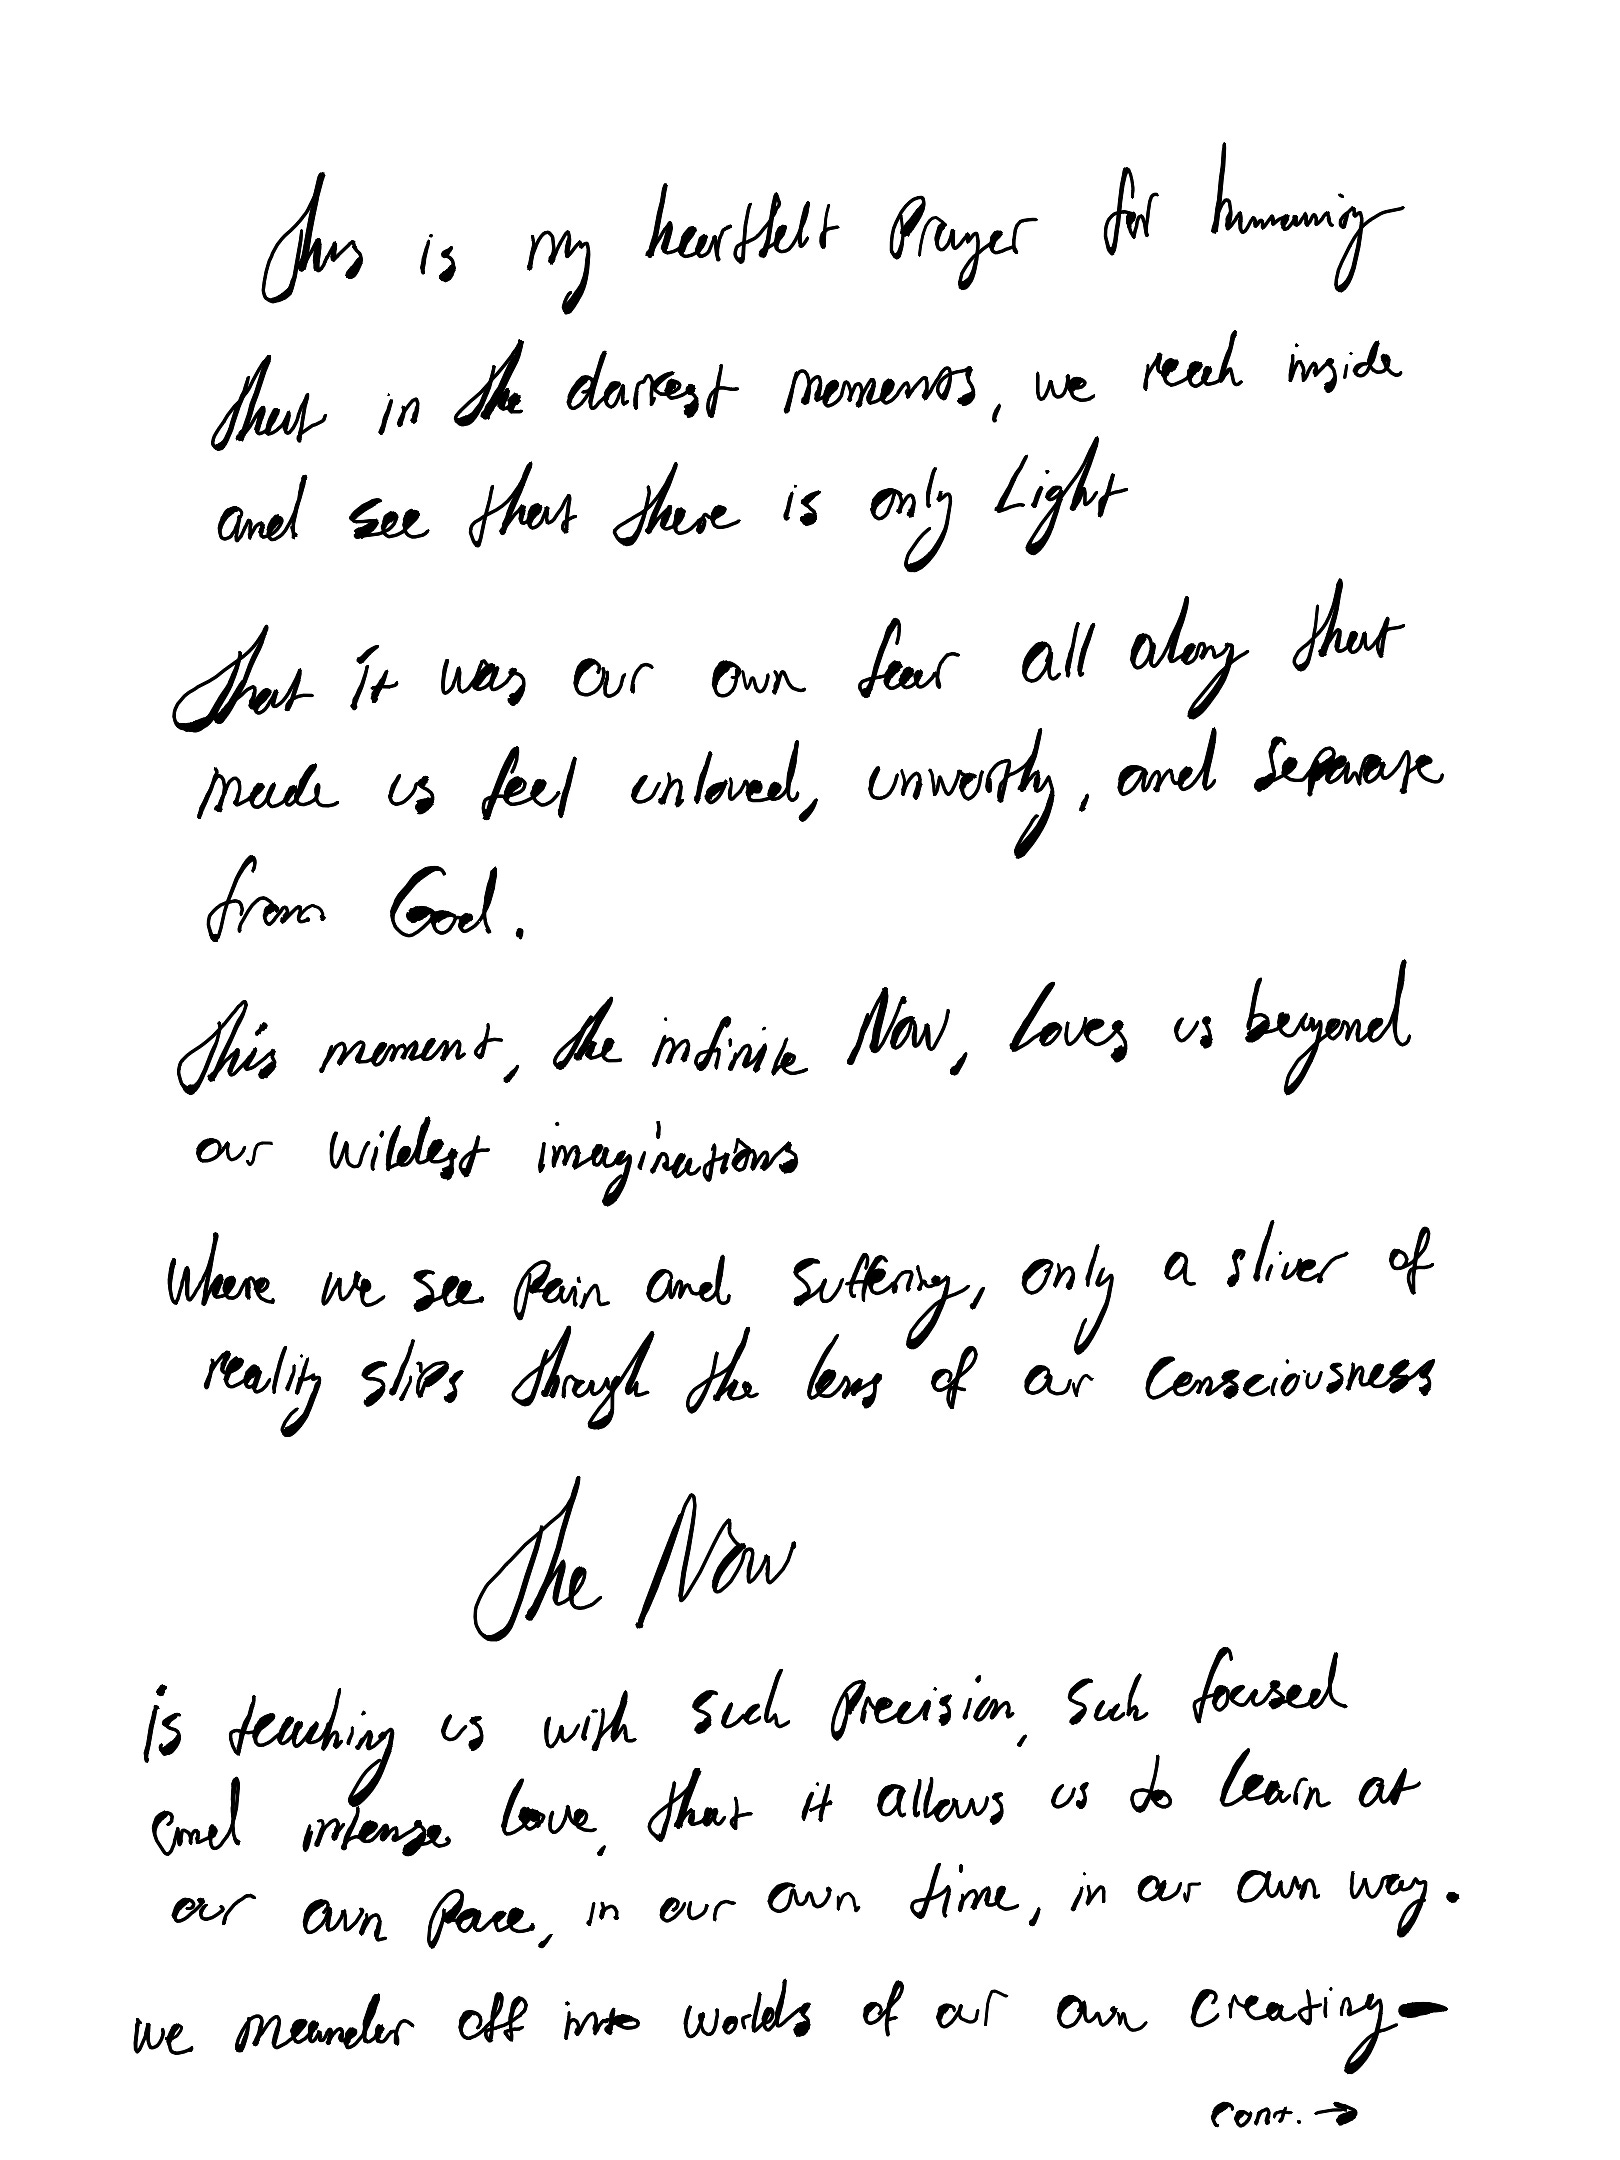 This is my heartfelt Prayer for humanity
that in the darkest moments, we reach inside
and see that there is only Light
That it was our own fear all along that
made us feel unloved, unworthy, and separate
from God.
This moment, the infinite Now, loves us beyond
our wildest imaginations
Where we see pain and suffering, only a sliver of
reality slips through the lens of our consciousness
The Now
is teaching us with such precision, such focused
and intense love, that it allows us to learn at
our own pace, in our own time, in our own way.
we meander off into worlds of our own creating-
cont. →